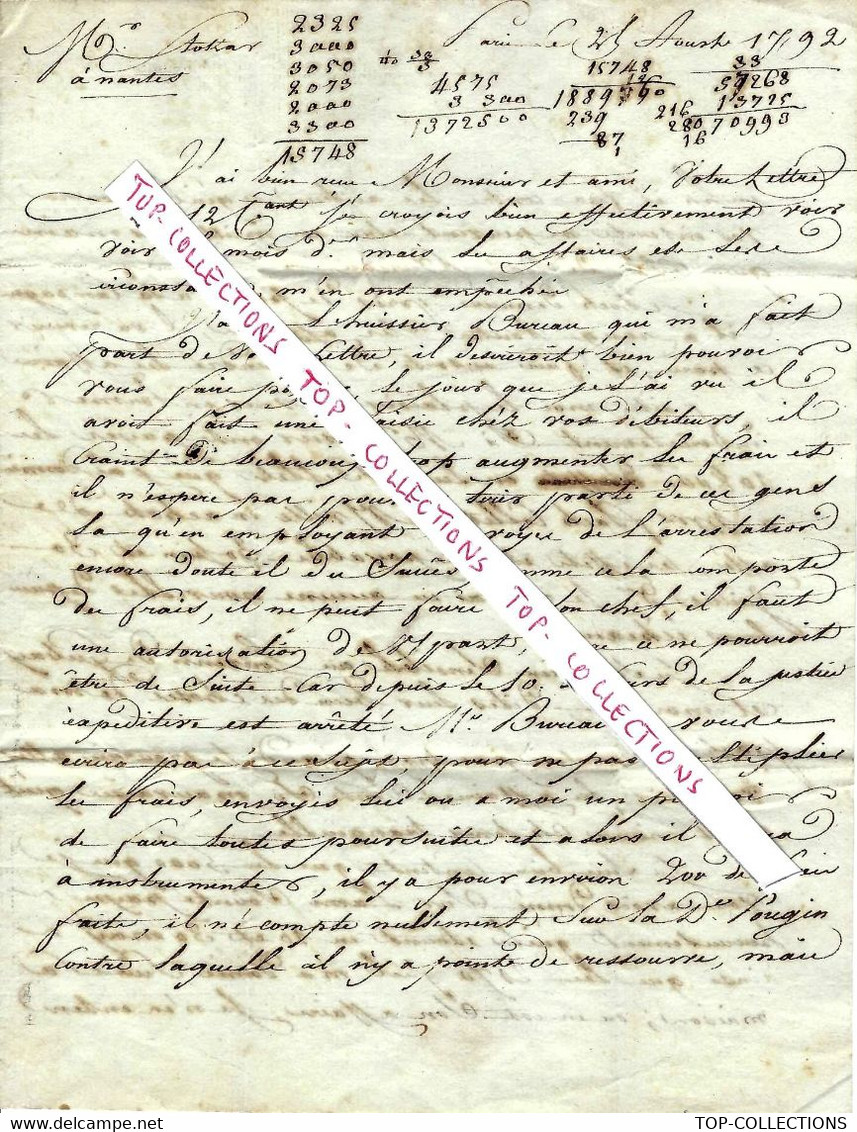 Mr. Stokar
à nantes
Paris le 25 Aoust 1792
2325
3000
3050
2073
2000
3300
15748
4575
3 300
1372500
15748
12
239
87
1
216
280
16
33
13725
70993
J'ai bien reçu Monsieur et ami, Votre Lettre
12 Ct je croyois bien effectivement voir
voir mois dr mais les affaires et les
m'en ont empêché
L'huissier Bureau qui m'a fait
part de Lettre, il desireroit bien pouvoir
vous faire le jour que je l'ai vu il
avoit fait une saisie chéz vos débiteurs, il
craint de beaucoup trop augmenter les frais et
il n'espere pas pouvoir tirer parti de ces gens
la qu'en employant voye de l'arrestation
encore doute il du Succès comme cela comporte
des frais, il ne peut faire son chef, il faut
une autorisation de Vt part, ce ne pourroit
être de Suite Car depuis le 10. Cours de la justice
expeditive est arrêté Mr. Bureau vous
ecrira pas à ce Sujet, pour ne pas multiplier
les frais, envoyés lui ou a moi un pouvoir
de faire toutes poursuites et alors il
à instrumenter, il y a pour environ 200 de frais
faits, il ne compte nullement Sur la De. Pougin
Contre laquelle il n'y a point de ressource, mais
TOP- COLLECTIONS TOP- COLLECTIONS TOP- COLLECTIONS
TOP-COLLECTIONS